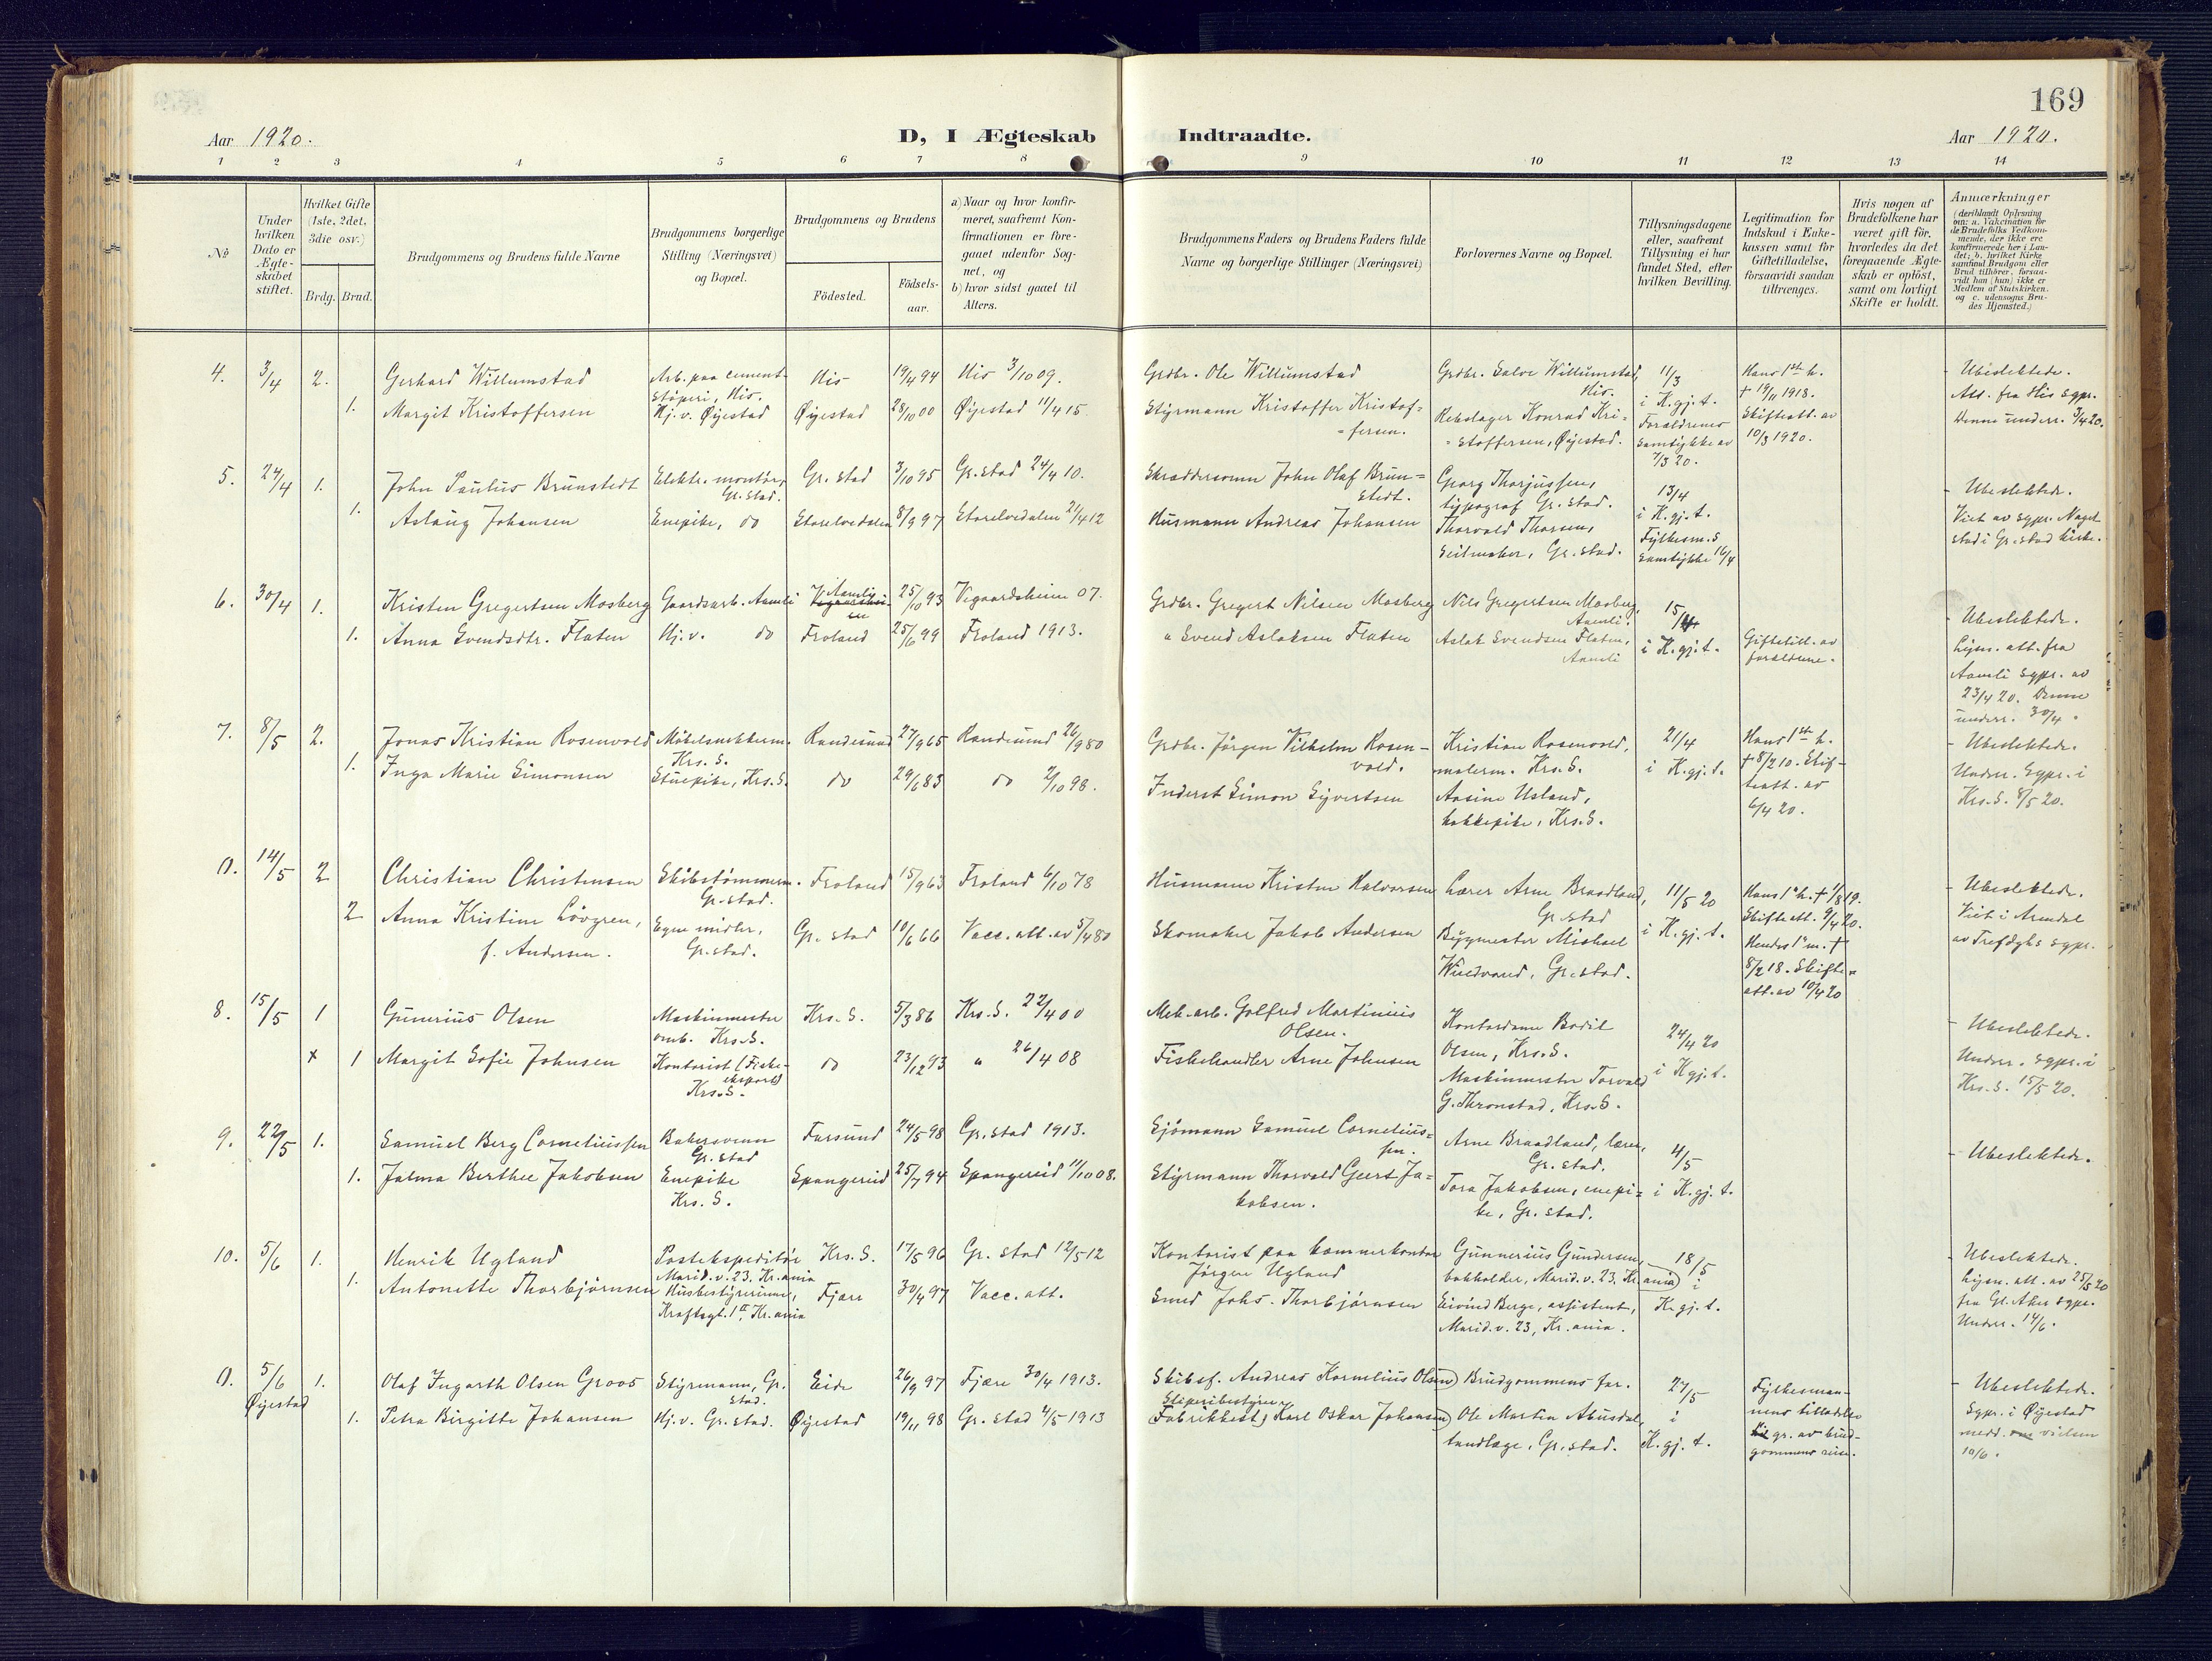 169
Aar 1920.
D, I Ægteskab Indtraadte.
Aar 1920.
1 2 3 4 5 6 7 8 9 10 11 12 13 14
No
Under hvilken Dato er Ægteskabet stiftet.
Hvilket Gifte (1ste, 2det, 3die osv.)
Brdg. Brud.
Brudgommens og Brudens fulde Navne
Brudgommens borgerlige Stilling (Næringsvei) og Bopæl.
Brudgommens og Brudens
Födested.
Födsels-aar.
a) Naar og hvor konfir-
meret, saafremt Kon-
firmationen er fore-
gaaet udenfor Sog-
net, og
b) hvor sidst gaaet til
Alters.
Brudgommens Faders og Brudens Faders fulde
Navne og borgerlige Stillinger (Næringsvei)
Forlovernes Navne og Bopæl.
Tillysningsdagene
eller, saafremt
Tillysning ei har
fundet Sted, efter
hvilken Bevilling.
Legitimation for
Indskud i Enke-
kassen samt for
Giftetilladelse,
forsaavidt saadan
tiltrænges.
Hvis nogen af
Brudefolkene har
været gift för,
hvorledes da det
foregaaende Ægte-
skab er oplöst,
samt om lovligt
Skifte er holdt.
Anmærkninger
(deriblandt Oplysning
om: a. Vakcination for
de Brudefolks Vedkom-
mende, der ikke ere
konfirmerede her i Lan-
det; b. hvilket Kirke
samfund Brudgom eller
Brud tilhörer, forsaa-
vidt han (hun) ikke er
Medlem af Statskirken.
og c. udensogns Bru-
des Hjemsted.)
4. 3/4 2. Gerhard Willumstad Arb. paa cement-støperi, His. His 19/4 94 His 3/10 09. Grdbr. Ole Willumstad Grdbr. Salve Willumstad, His. 11/3 i K.gj.t. Hans 1ste h. † 19/11 1918. Skifteatt. av 10/3 1920. - Ubeslektede.
1. Margit Kristoffersen Hj. v. Øyestad Øyestad 28/10 00 Øyestad 11/4 15. Styrmann Kristoffer Kristof-
=fersen. Rebslager Konrad Kri-
=stoffersen, Øyestad. Forældrenes samtykke av 7/3 20. Att. fra His sgpr. Denne underr. 3/4 20.
5. 24/4 1. John Paulus Brunstedt Elektr. montør, Gr.stad. Gr. stad 3/10 95 Gr. stad 24/4 10. Skræddersvenn John Olaf Brun=
stedt. Georg Thorjussen, typograf Gr. stad. 13/4 i K.gj.t. - Ubeslektede.
1. Aslaug Johansen Enepike, do Storelvedalen 8/9 97 Storelvedalen 21/4 12 Husmann Andreas Johansen Thorvald Thorsen, Seilmaker, Gr. stad. Fylkesm.s samtykke 16/4 Viet av sgpr. Nagel-
stad i Gr. stad kirke.
6. 30/4 1. Kristen Gregertsen Mosberg Gaardsarb. Aamli Aamli 25/10 93 Vegaardsheien 07. Grdbr. Gregert Nilsen Mosberg Nils Gregertsen Mosberg, Aamli. 15/4 - Ubeslektede.
1. Anna Svendsdtr. Flaten Hj. v. do Froland 25/6 99 Froland 1913. " Svend Aslaksen Flaten Aslak Svendsen Flaten, Aamli i K.gj.t. Giftetill. av forældrene. Lysn. att. fra Aamli sgpr. av 23/4 20. Denne underr. 30/4.
7. 8/5 2. Jonas Kristian Rosenvold Møbelsnekkerm. Krs. S. Randesund 27/9 65 Randesund 26/9 80 Grdbr. Jörgen Vilhelm Rosen-
vold. Kristian Rosenvold, malerm. Krs. S. 21/4 i K.gj.t. Hans 1ste h. † 8/2 10. Skif-
teatt. av 6/4 20. - Ubeslektede.
1. Inga Marie Simonsen Stuepike, Krs. S. do 29/6 83 do 2/10 98. Inderst Simon Syvertsen Aasine Usland, kokkepike, Krs. S. Underr. Sgpr. i Krs. S. 8/5 20.
0. 14/5 2 Christian Christensen Skibstømmerm. Gr. stad. Froland 15/9 63 Froland 6/10 78 Husmann Kristen Halvorsen Lærer Arne Braadland, Gr. stad 11/5 20 i K.gj.t. Hans 1e h. † 1/8 19. Skifteatt. 9/4 20. - Ubeslektede.
2 Anna Kristine Løvgren, f. Andersen. Egne midler, Gr. stad. Gr. stad 10/6 66 Vacc. att. av 5/4 80 Skomaker Jakob Andersen Bygmester Michael Gr. stad. Hendes 1e m. † 8/2 18. Skifte-
att. av 10/4 20 Viet i Arendal av sgpr.
8. 15/5 1 Gunerius Olsen Maskinmester omb. Krs. S. Krs. S. 5/3 86 Krs. S. 22/4 00 Mek. arb. Golfred Martinius Olsen. Kontordame Bodil Olsen, Krs. S. 24/4 20 i K.gj.t. - Ubeslektede.
x 1 Margit Sofie Johnsen Kontorist (Fiske-
eksport) Krs. S. do 23/12 93 " 26/4 08 Fiskehandler Arne Johnsen Maskinmester Torvald G. Thronstad, Krs. S. Underr. sgpr. i Krs. S. 15/5 20.
9. 22/5 1. Samuel Berg Corneliussen Bakersvenn Gr. stad Farsund 24/5 98 Gr. stad 1913. Sjömann Samuel Cornelius=
sen. Arne Braadland, lærer, Gr. stad. 4/5 i K.gj.t. - Ubeslektede.
1. Jalma Berthee Jakobsen Enepike Krs. S. Spangereid 25/7 94 Spangereid 11/10 08. Styrmann Thorvald Geert Ja-
kobsen. Tora Jakobsen, enepi=
ke, Gr. stad.
10. 5/6 1. Henrik Ugland Postekspeditør Marid. v. 23, Kr.ania Krs. S. 17/5 96 Gr. stad 12/5 12 Kontorist paa kæmnerkontor Jörgen Ugland Gunnerius Gundersen, bokholder, Marid. v. 23, Kr.ania 18/5 i K.gj.t. - Ubeslektede.
1. Antonette Thorbjørnsen Husbestyrerinne, Kraftsgt. 1 II, Kr.ania Fjære 30/4 97 Vacc. att. Smed Johs. Thorbjörnsen Eivind Berge, assistent, Marid. v. 23, Kr.ania. Lysn. att. av 25/5 20 fra Gl. Aker sgpr. Underr. 14/6.
0. 5/6 Øyestad 1. Olaf Ingarth Olsen Groos Styrmann, Gr. stad. Eide 26/9 97 Fjære 30/4 1913. Skibsf. Andreas Kornelius Olsen Brudgommens far. 27/5 i K.gj.t. Fylkesman-
nens tilladelse gr. av brud-
gommens reise. - Ubeslektede.
1. Petra Birgitte Johansen Hj. v. Gr. stad. Øyestad 19/11 98 Gr. stad 4/5 1913 Sliperibestyrer (Fabrikkest.) Karl Oskar Johansen Ole Martin Abusdal, tandlæge, Gr. stad. Sgpr. i Øyestad medd. vielsen 10/6.